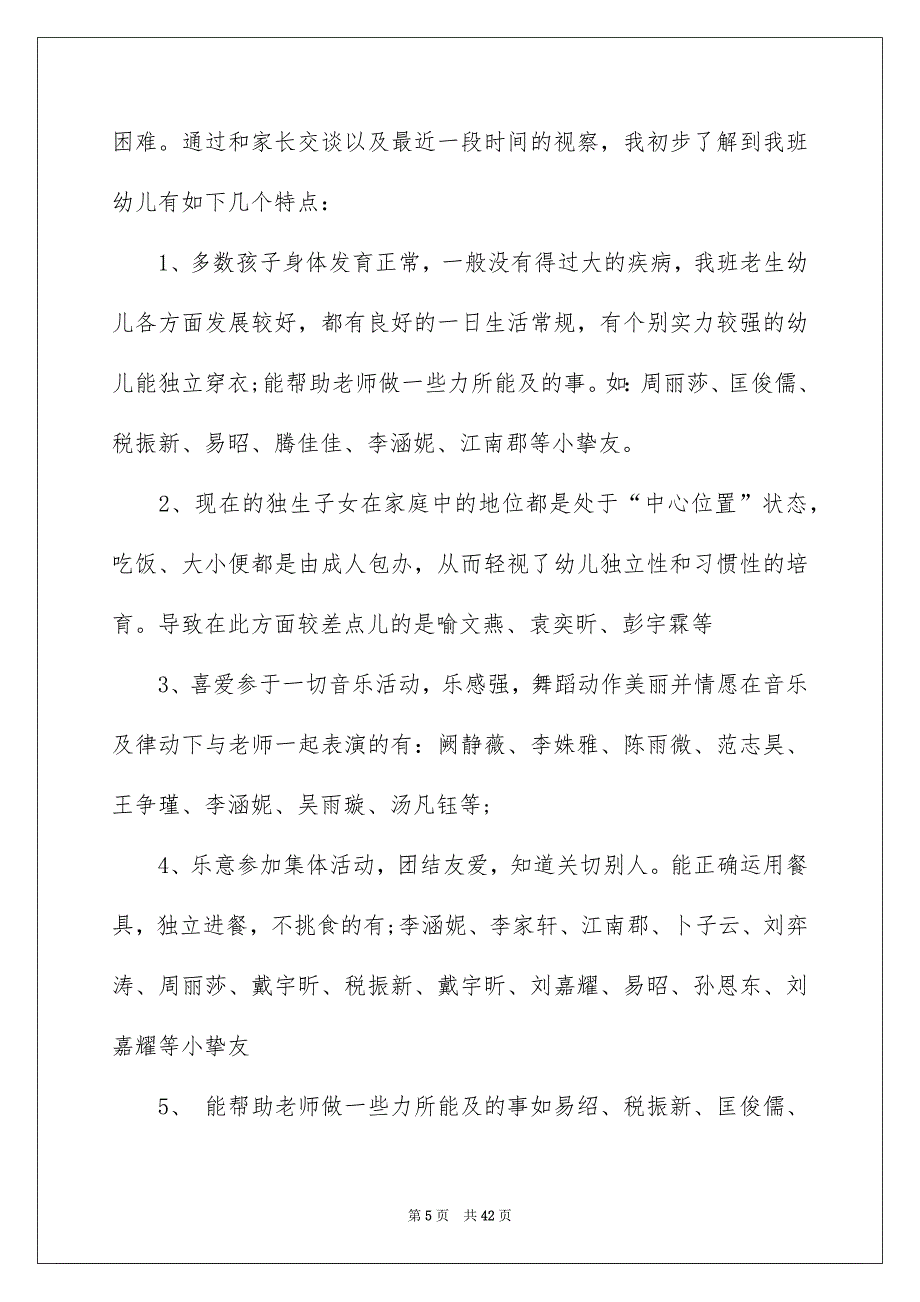 困难。通过和家长交谈以及最近一段时间的视察，我初步了解到我班
幼儿有如下几个特点：
1、多数孩子身体发育正常，一般没有得过大的疾病，我班老生幼
儿各方面发展较好，都有良好的一日生活常规，有个别实力较强的幼
儿能独立穿衣;能帮助老师做一些力所能及的事。如：周丽莎、匡俊儒、
税振新、易昭、腾佳佳、李涵妮、江南郡等小挚友。
2、现在的独生子女在家庭中的地位都是处于“中心位置”状态，
吃饭、大小便都是由成人包办，从而轻视了幼儿独立性和习惯性的培
育。导致在此方面较差点儿的是喻文燕、袁奕昕、彭宇霖等
3、喜爱参于一切音乐活动，乐感强，舞蹈动作美丽并情愿在音乐
及律动下与老师一起表演的有：阙静薇、李姝雅、陈雨微、范志昊、
王争瑾、李涵妮、吴雨璇、汤凡钰等;
4、乐意参加集体活动，团结友爱，知道关切别人。能正确运用餐
具，独立进餐，不挑食的有;李涵妮、李家轩、江南郡、卜子云、刘弈
涛、周丽莎、戴宇昕、税振新、戴宇昕、刘嘉耀、易昭、孙恩东、刘
嘉耀等小挚友
5、 能帮助老师做一些力所能及的事如易绍、税振新、匡俊儒、
第 5 页 共 42 页